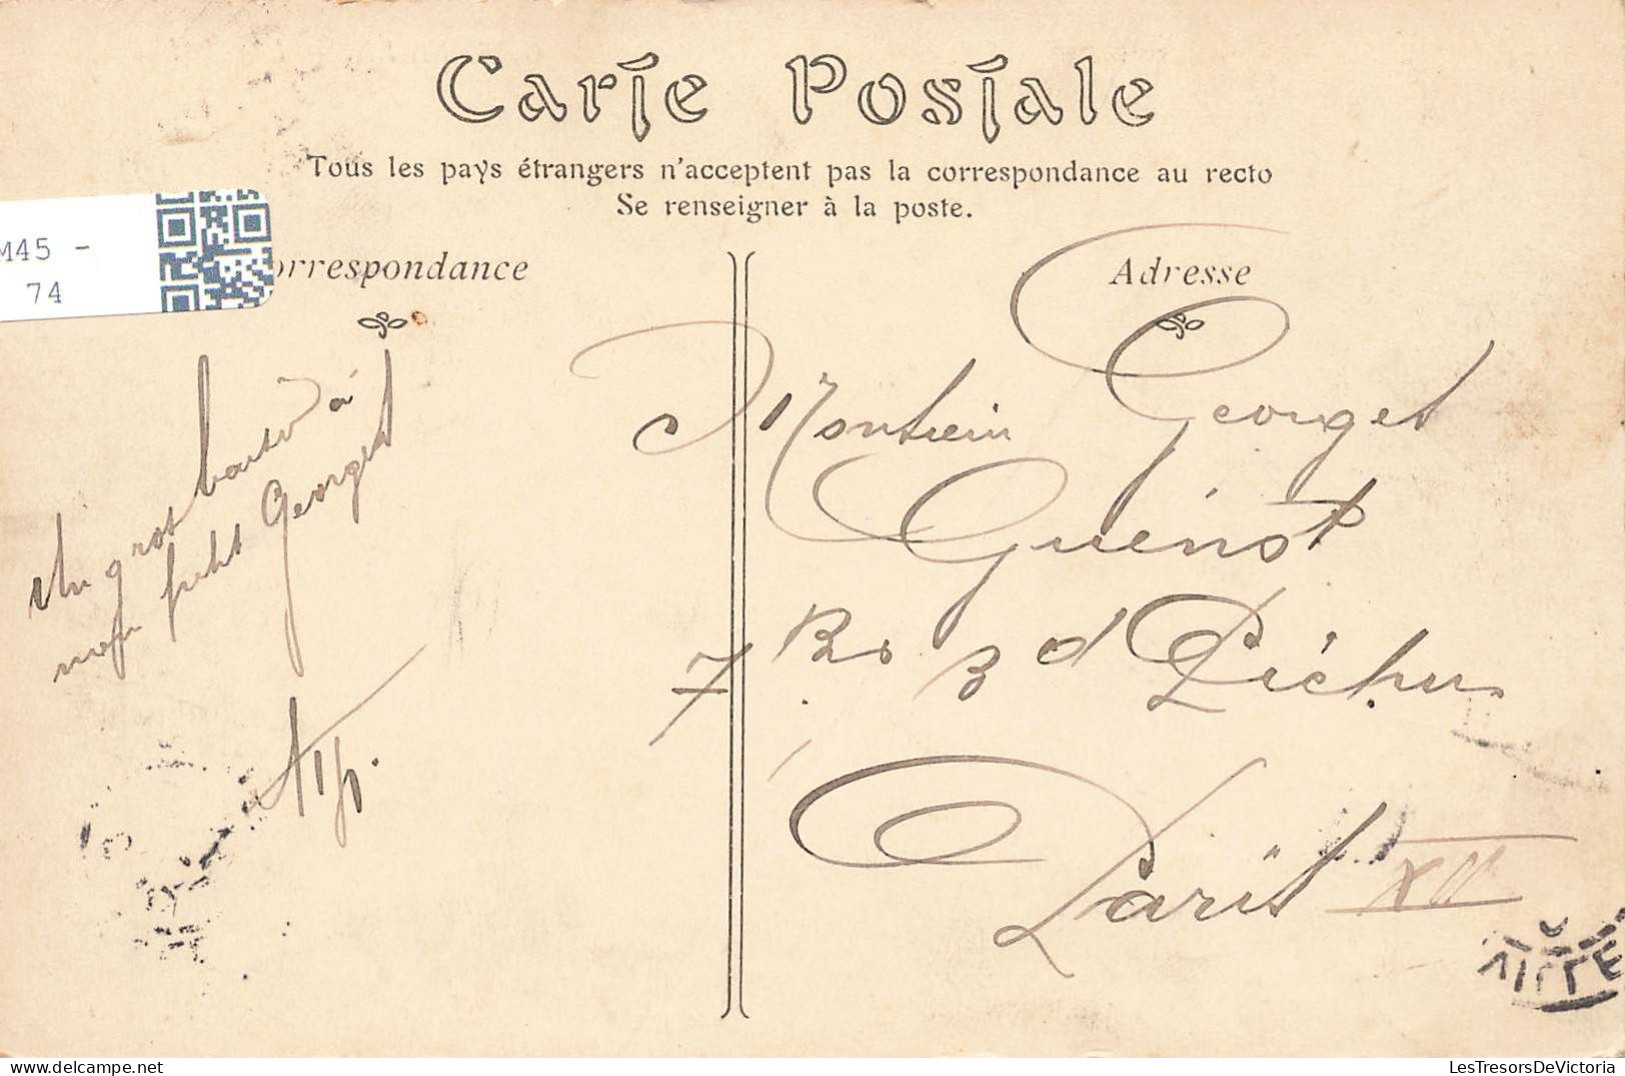 Carte Postale
Tous les pays étrangers n'acceptent pas la correspondance au recto
Se renseigner à la poste.
M45 -
74
orrespondance
Adresse
Un gros baiser à
mon petit Georget
Alp.
Georget
Guénot
7 Bd
Paris XII
VILLE
LesTresorsDeVictoria